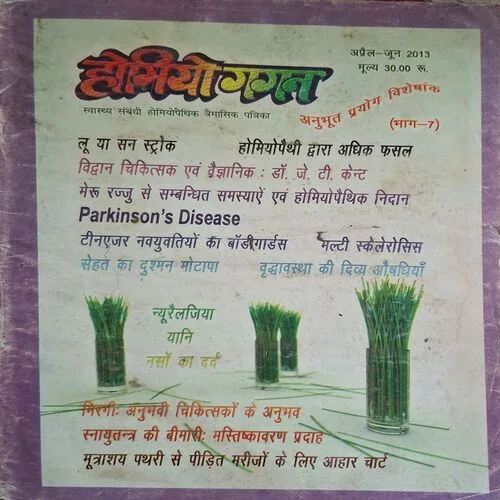 अप्रैल-जून 2013
मूल्य 30.00 रू.
होमियो गगन
स्वास्थ्य संबंधी होमियोपैथिक त्रैमासिक पत्रिका
अनुभूत प्रयोग विशेषांक
(भाग-7)
लू या सन स्ट्रोक होमियोपैथी द्वारा अधिक फसल
विद्वान चिकित्सक एवं वैज्ञानिक : डॉ. जे. टी. केन्ट
मेरू रज्जु से सम्बन्धित समस्याऐं एवं होमियोपैथिक निदान
Parkinson's Disease
टीनएजर नवयुवतियों का बॉडीगार्डस मल्टी स्केलेरोसिस
सेहत का दुश्मन मोटापा वृद्धावस्था की दिव्य औषधियाँ
न्यूरैलजिया
यानि
नसों का दर्द
मिरगी: अनुभवी चिकित्सकों के अनुभव
स्नायुतन्त्र की बीमारी: मस्तिष्कावरण प्रदाह
मूत्राशय पथरी से पीड़ित मरीजों के लिए आहार चार्ट